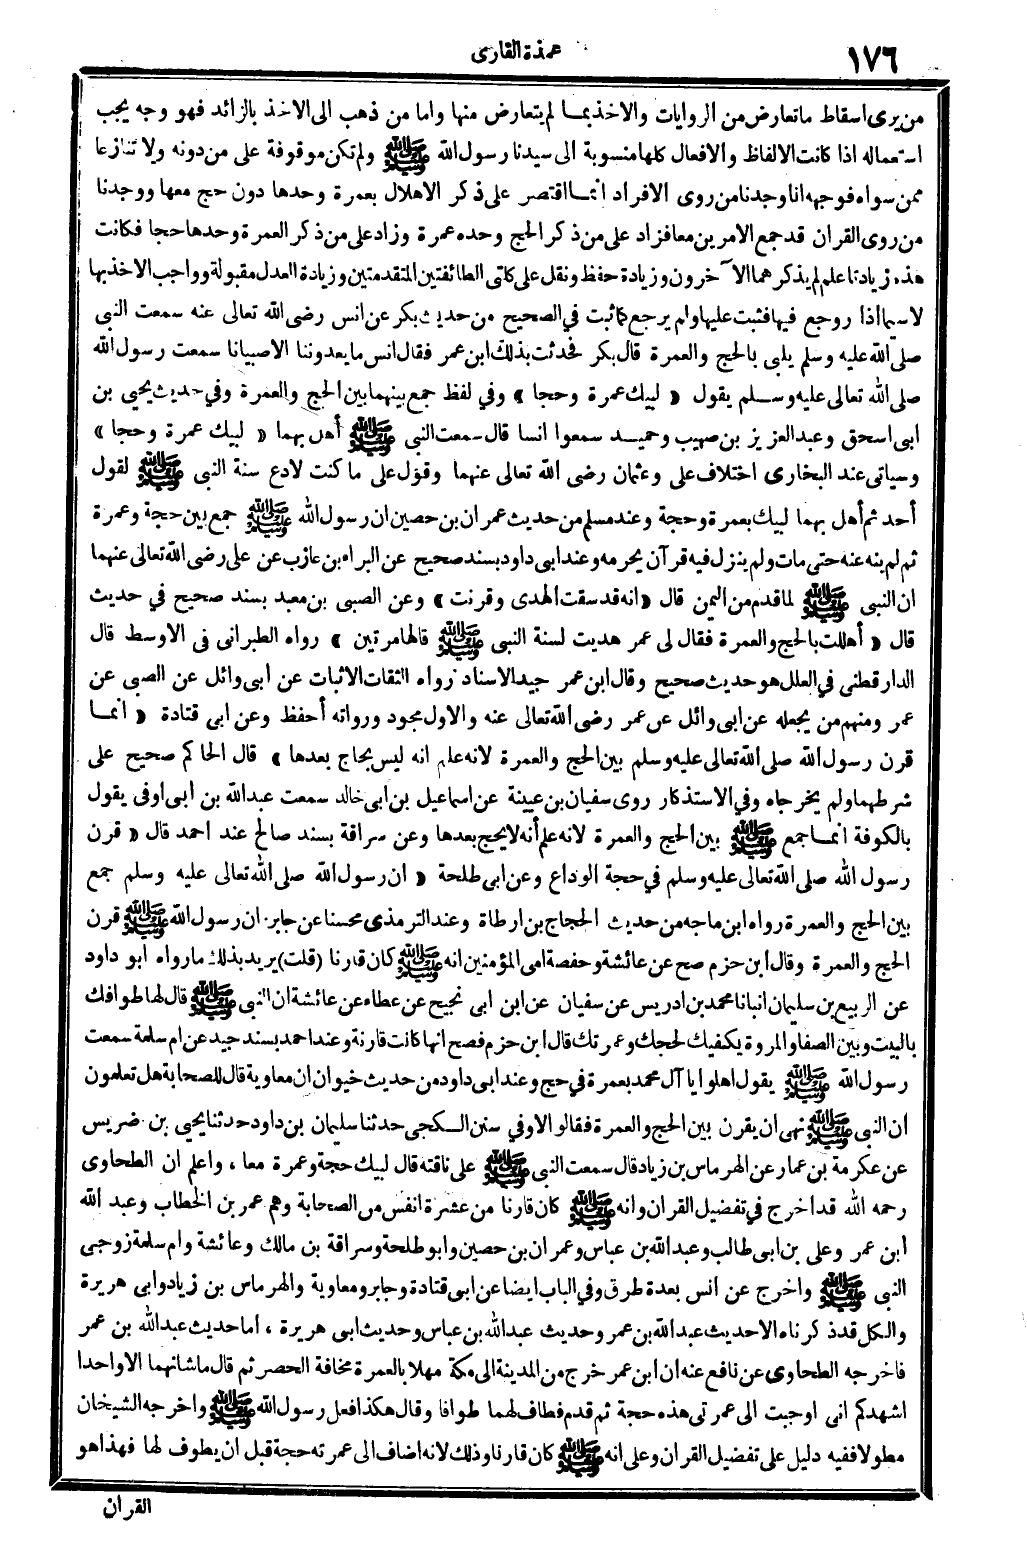 ١٧٦
عمدة القارى
من يرى اسقاط ما تعارض من الروايات والاخذ بما لم يتعارض منها واما من ذهب الى الاخذ بالزائد فهو وجه يجب
استعماله اذا كانت الالفاظ والافعال كلها منسوبة الى سيدنا رسول الله ﷺ ولم تكن موقوفة على من دونه ولا تنازعا
ممن سواه فوجهه انا وجدنا من روى الافراد انما اقتصر على ذكر الاهلال بعمرة وحدها دون حج معها ووجدنا
من روى القران قد جمع الامرين معا فزاد على من ذكر الحج وحده عمرة وزاد على من ذكر العمرة وحدها حجا فكانت
هذه زيادتا علم لم يذكرهما الآخرون وزيادة حفظ ونقل على كلتى الطائفتين المتقدمتين وزيادة العدل مقبولة وواجب الاخذ بها
لاسيما اذا روجع فيها فثبت عليها ولم يرجع كما ثبت في الصحيح من حديث بكر عن انس رضى الله تعالى عنه سمعت النبى
صلى الله عليه وسلم يلبى بالحج والعمرة قال بكر فحدثت بذلك ابن عمر فقال انس ما يعدوننا الا صبيانا سمعت رسول الله
صلى الله تعالى عليه وسلم يقول « لبيك عمرة وحجا » وفي لفظ جمع بينهما بين الحج والعمرة وفي حديث يحيى بن
ابى اسحق وعبد العزيز بن صهيب وحميد سمعوا انسا قال سمعت النبى ﷺ أهل بهما « لبيك عمرة وحجا »
وسياتى عند البخارى اختلاف على وعثمان رضى الله تعالى عنهما وقول على ما كنت لادع سنة النبى ﷺ لقول
أحد ثم أهل بهما لبيك بعمرة وحجة وعند مسلم من حديث عمران بن حصين ان رسول الله ﷺ جمع بين حجة وعمرة
ثم لم ينه عنه حتى مات ولم ينزل فيه قرآن يحرمه وعند ابى داود بسند صحيح عن البراء بن عازب عن على رضى الله تعالى عنهما
ان النبى ﷺ لما قدم من اليمن قال « انه قد سقت الهدى وقرنت » وعن الصبى بن معبد بسند صحيح في حديث
قال « أهللت بالحج والعمرة فقال لى عمر هديت لسنة النبى ﷺ قالها مرتين » رواه الطبرانى فى الاوسط قال
الدارقطنى في العلل هو حديث صحيح وقال ابن عمر جيد الاسناد رواه الثقات الاثبات عن أبى وائل عن الصبى عن
عمر ومنهم من يجعله عن ابى وائل عن عمر رضى الله تعالى عنه والاول مجود ورواته أحفظ وعن ابى قتادة « انما
قرن رسول الله صلى الله تعالى عليه وسلم بين الحج والعمرة لانه علم انه ليس بحاج بعدها » قال الحاكم صحيح على
شرطهما ولم يخرجاه وفي الاستذكار روى سفيان بن عيينة عن اسماعيل بن ابى خالد سمعت عبد الله بن أبى أوفى يقول
بالكوفة انما جمع ﷺ بين الحج والعمرة لانه علم أنه لا يحج بعدها وعن سراقة بسند صالح عند احمد قال « قرن
رسول الله صلى الله تعالى عليه وسلم في حجة الوداع وعن ابى طلحة « ان رسول الله صلى الله تعالى عليه وسلم جمع
بين الحج والعمرة رواه ابن ماجه من حديث الحجاج بن ارطاة وعند الترمذى محسنا عن جابر ان رسول الله ﷺ قرن
الحج والعمرة وقال ابن حزم صح عن عائشة وحفصة امى المؤمنين انه ﷺ كان قارنا (قلت) يريد بذلك ما رواه ابو داود
عن الربيع بن سليمان انبانا محمد بن ادريس عن سفيان عن ابن ابى نجيح عن عطاء عن عائشة ان النبى ﷺ قال لها طوافك
بالبيت وبين الصفا والمروة يكفيك لحجك وعمرتك قال ابن حزم فصح انها كانت قارنة وعند احمد بسند جيد عن ام سلمة سمعت
رسول الله ﷺ يقول اهلوا يا آل محمد بعمرة في حج وعند ابى داود من حديث خيوان ان معاوية قال للصحابة هل تعلمون
أن النبى ﷺ نهى ان يقرن بين الحج والعمرة فقالوا لا وفي سنن الكجى حدثنا سليمان بن داود حدثنا يحيى بن ضريس
عن عكرمة بن عمار عن الهرماس بن زياد قال سمعت النبى ﷺ على ناقته قال لبيك حجة وعمرة معا ، واعلم ان الطحاوى
رحمه الله قد اخرج في تفضيل القران وانه ﷺ كان قارنا من عشرة انفس من الصحابة وهم عمر بن الخطاب وعبد الله
أبن عمر وعلى بن ابى طالب وعبد الله بن عباس وعمران بن حصين وابو طلحة وسراقة بن مالك وعائشة وام سلمة زوجى
النبى ﷺ واخرج عن أنس بعدة طرق وفي الباب ايضا عن ابى قتادة وجابر ومعاوية والهرماس بن زياد وابى هريرة
والكل قد ذكرناه الا حديث عبد الله بن عمر وحديث عبد الله بن عباس وحديث ابى هريرة ، أما حديث عبد الله بن عمر
فاخرجه الطحاوى عن نافع عنه ان ابن عمر خرج من المدينة الى مكة مهلا بالعمرة مخافة الحصر ثم قال ما شانهما الا واحدا
اشهدكم انى اوجبت الى عمرتى هذه حجة ثم قدم فطاف لهما طوافا وقال هكذا فعل رسول الله ﷺ واخرجه الشيخان
مطولا ففيه دليل على تفضيل القران وعلى انه ﷺ كان قارنا وذلك لانه اضاف الى عمرته حجة قبل ان يطوف لها فهذا هو
القران